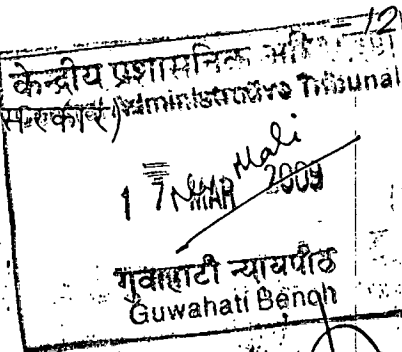 12
केन्द्रीय प्रशासनिक
Administrative Tribunal
17 MAR 2009
गुवाहाटी न्यायपीठ
Guwahati Bench